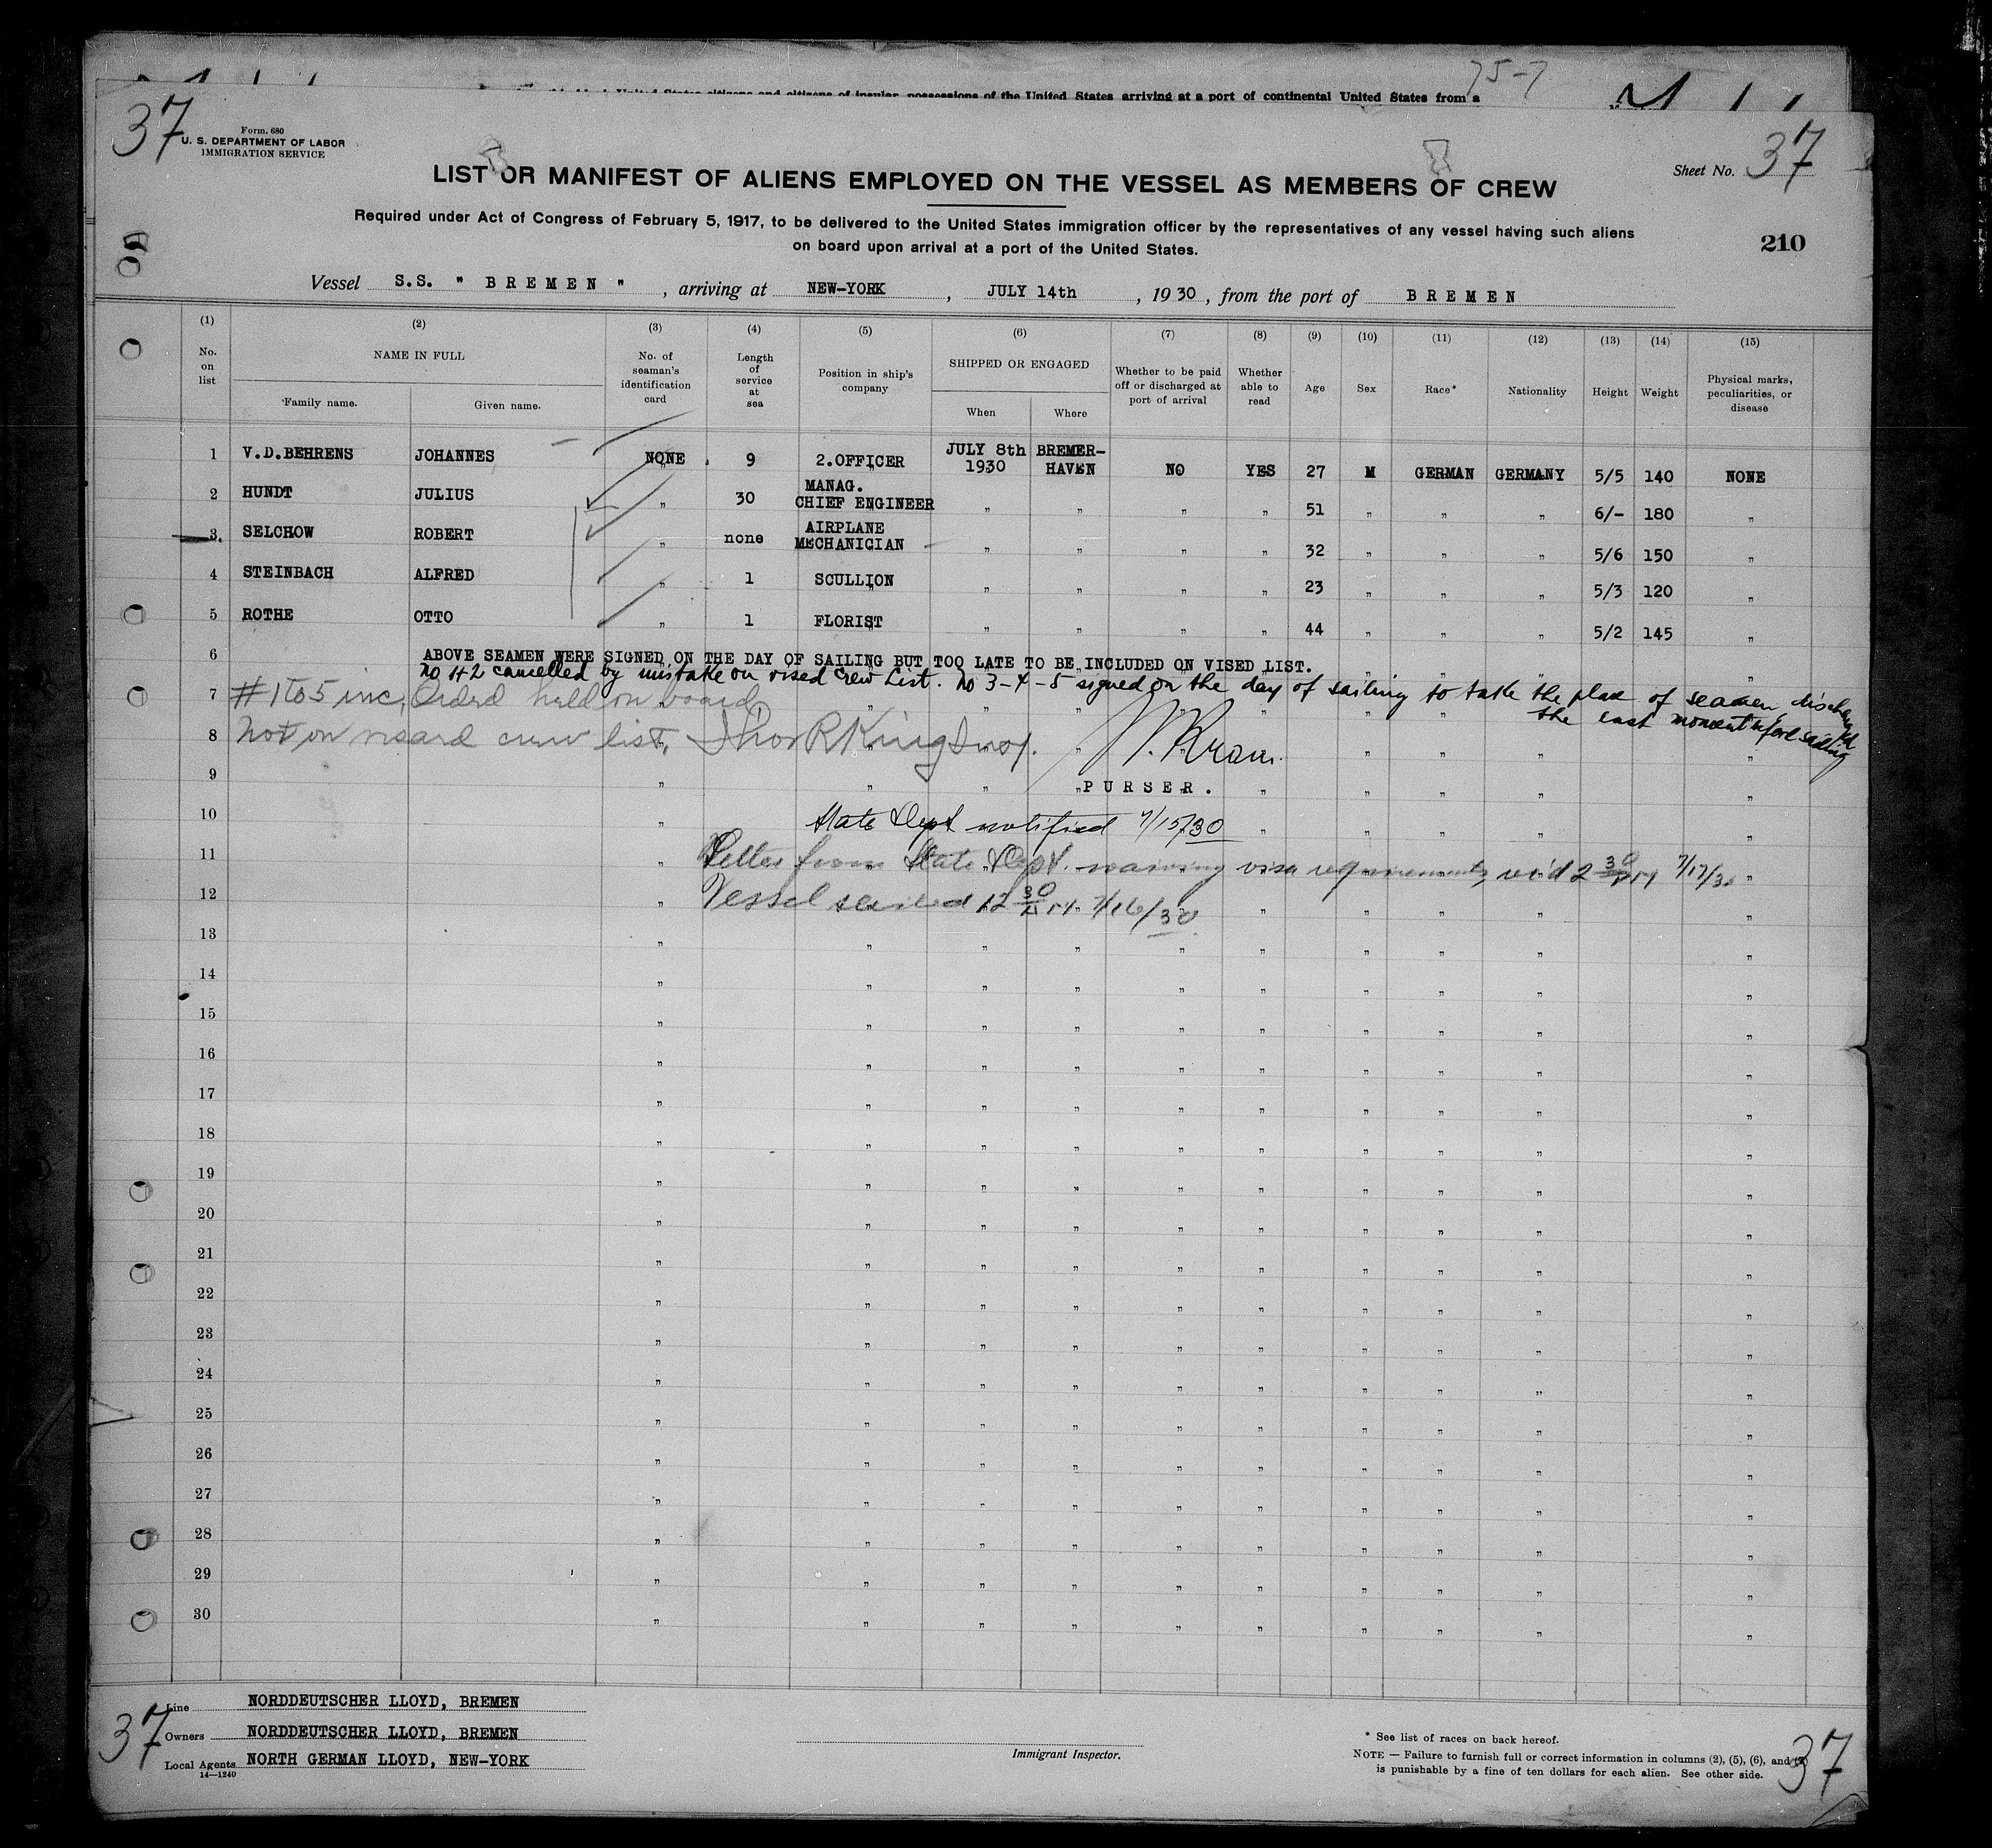 75-7
United States citizens and citizens of insular possessions of the United States arriving at a port of continental United States from a
37
Form. 680
U. S. DEPARTMENT OF LABOR
IMMIGRATION SERVICE
LIST OR MANIFEST OF ALIENS EMPLOYED ON THE VESSEL AS MEMBERS OF CREW
Sheet No. 37
Required under Act of Congress of February 5, 1917, to be delivered to the United States immigration officer by the representatives of any vessel having such aliens
on board upon arrival at a port of the United States.
210
Vessel S.S. " BREMEN " , arriving at NEW-YORK , JULY 14th , 1930 , from the port of BREMEN
(1) (2) (3) (4) (5) (6) (7) (8) (9) (10) (11) (12) (13) (14) (15)
No. on list NAME IN FULL Family name. Given name. No. of seaman's identification card Length of service at sea Position in ship's company SHIPPED OR ENGAGED When Where Whether to be paid off or discharged at port of arrival Whether able to read Age Sex Race* Nationality Height Weight Physical marks, peculiarities, or disease
1 V.D.BEHRENS JOHANNES NONE 9 2.OFFICER JULY 8th 1930 BREMER-HAVEN NO YES 27 M GERMAN GERMANY 5/5 140 NONE
2 HUNDT JULIUS " 30 MANAG. CHIEF ENGINEER " " " " 51 " " " 6/- 180 "
3 SELCHOW ROBERT " none AIRPLANE MECHANICIAN " " " " 32 " " " 5/6 150 "
4 STEINBACH ALFRED " 1 SCULLION " " " " 23 " " " 5/3 120 "
5 ROTHE OTTO " 1 FLORIST " " " " 44 " " " 5/2 145 "
6 ABOVE SEAMEN WERE SIGNED ON THE DAY OF SAILING BUT TOO LATE TO BE INCLUDED ON VISED LIST.
No 1+2 cancelled by mistake on vised crew List. No 3-4-5 signed on the day of sailing to take the place of seamen discharged
the last moment before sailing
7 #1 to 5 inc, Ordered held on board
8 Not on visaed crew list. Thos R King Insp.
9 PURSER.
10 State Dept notified 7/15/30
11 Letter from State Dept. waiving visa requirements rec'd 2 30 PM 7/17/30
12 Vessel sailed 12 30 AM 7/16/30
13
14
15
16
17
18
19
20
21
22
23
24
25
26
27
28
29
30
37
Line NORDDEUTSCHER LLOYD, BREMEN
Owners NORDDEUTSCHER LLOYD, BREMEN
Local Agents NORTH GERMAN LLOYD, NEW-YORK
14—1240
Immigrant Inspector.
* See list of races on back hereof.
NOTE — Failure to furnish full or correct information in columns (2), (5), (6), and (7)
is punishable by a fine of ten dollars for each alien. See other side.
37